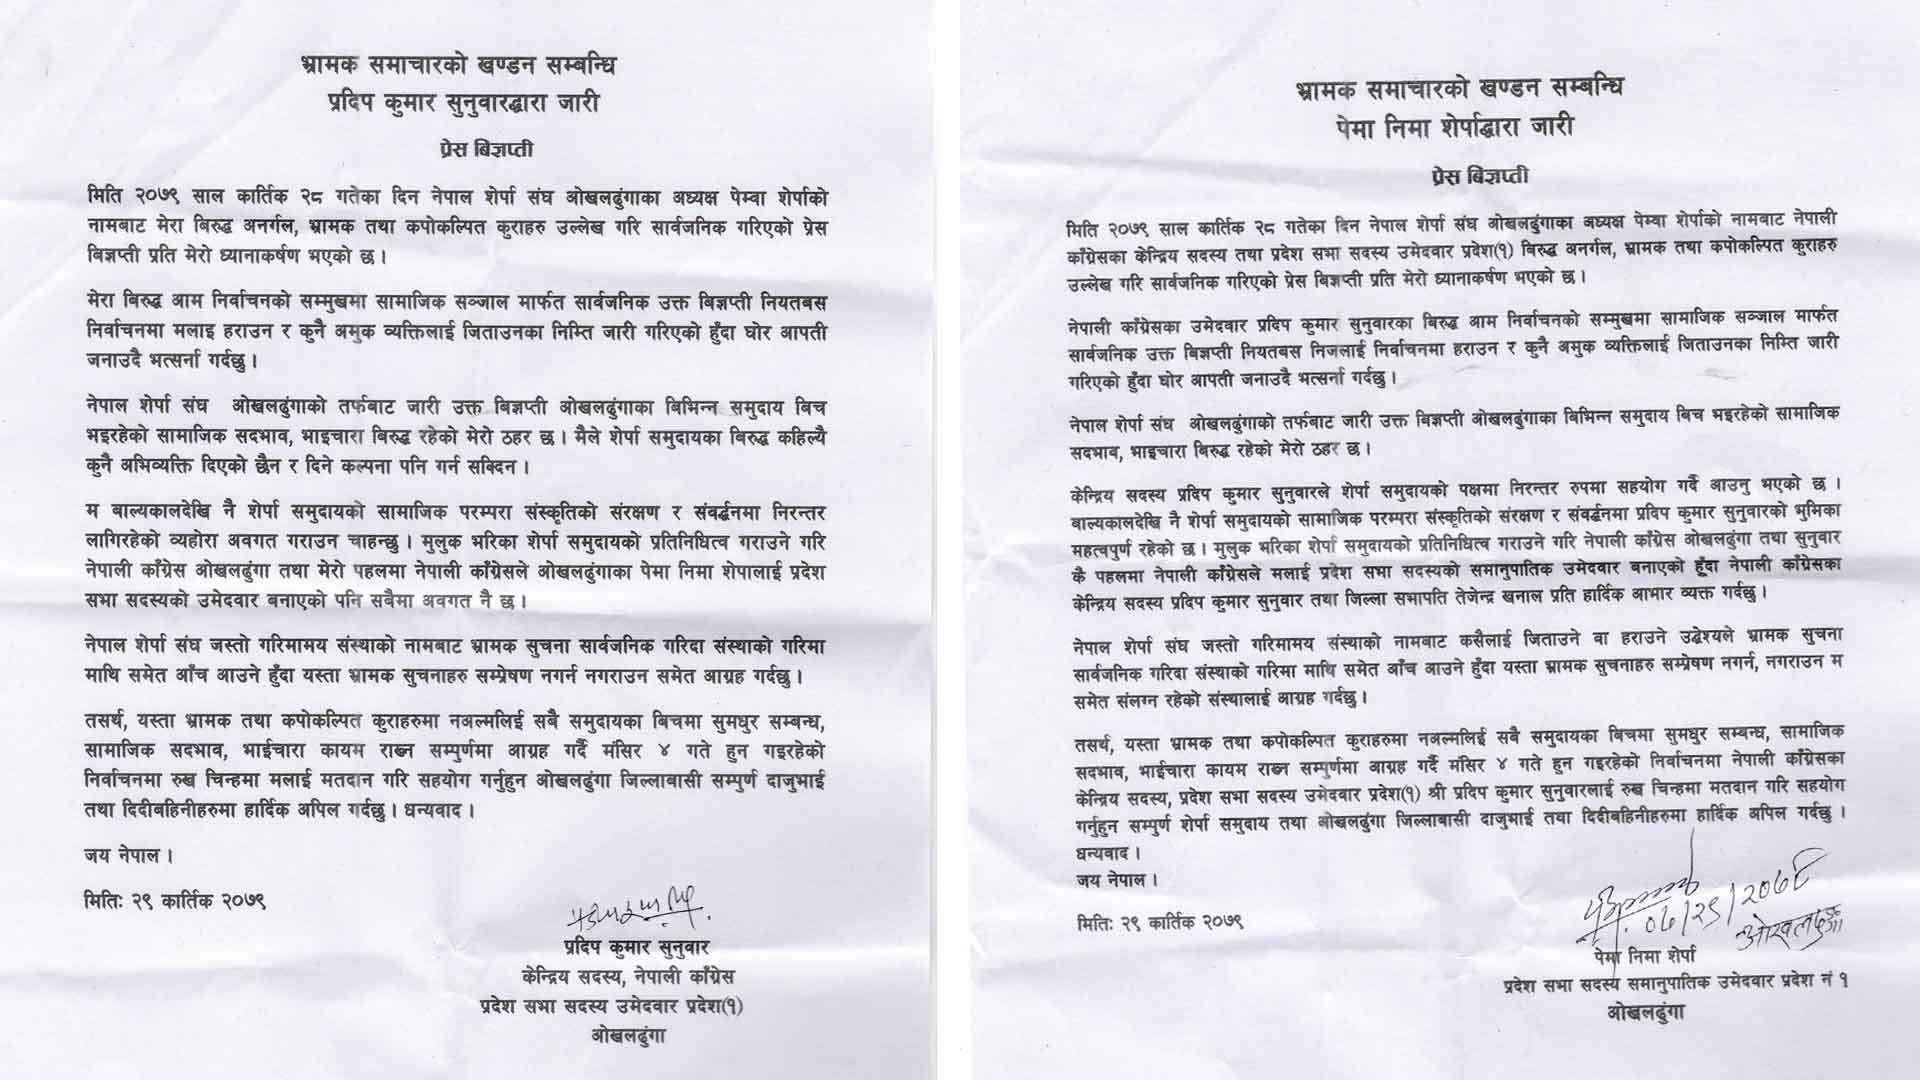 भ्रामक समाचारको खण्डन सम्बन्धि
प्रदिप कुमार सुनुवारद्वारा जारी
प्रेस बिज्ञप्ती
मिति २०७९ साल कार्तिक २८ गतेका दिन नेपाल शेर्पा संघ ओखलढुंगाका अध्यक्ष पेम्वा शेर्पाको
नामबाट मेरा बिरुद्ध अनर्गल, भ्रामक तथा कपोकल्पित कुराहरु उल्लेख गरि सार्वजनिक गरिएको प्रेस
बिज्ञप्ती प्रति मेरो ध्यानाकर्षण भएको छ ।
मेरा बिरुद्ध आम निर्वाचनको सम्मुखमा सामाजिक सञ्जाल मार्फत सार्वजनिक उक्त बिज्ञप्ती नियतबस
निर्वाचनमा मलाइ हराउन र कुनै अमुक व्यक्तिलाई जिताउनका निम्ति जारी गरिएको हुँदा घोर आपती
जनाउदै भत्सर्ना गर्दछु ।
नेपाल शेर्पा संघ ओखलढुंगाको तर्फबाट जारी उक्त बिज्ञप्ती ओखलढुंगाका बिभिन्न समुदाय बिच
भइरहेको सामाजिक सदभाव, भाइचारा बिरुद्ध रहेको मेरो ठहर छ । मैले शेर्पा समुदायका बिरुद्ध कहिल्यै
कुनै अभिव्यक्ति दिएको छैन र दिने कल्पना पनि गर्न सक्दिन ।
म बाल्यकालदेखि नै शेर्पा समुदायको सामाजिक परम्परा संस्कृतिको संरक्षण र संवर्द्धनमा निरन्तर
लागिरहेको व्यहोरा अवगत गराउन चाहन्छु । मुलुक भरिका शेर्पा समुदायको प्रतिनिधित्व गराउने गरि
नेपाली काँग्रेस ओखलढुंगा तथा मेरो पहलमा नेपाली काँग्रेसले ओखलढुंगाका पेमा निमा शेपालाई प्रदेश
सभा सदस्यको उमेदवार बनाएको पनि सबैमा अवगत नै छ ।
नेपाल शेर्पा संघ जस्तो गरिमामय संस्थाको नामबाट भ्रामक सुचना सार्वजनिक गरिदा संस्थाको गरिमा
माथि समेत आँच आउने हुँदा यस्ता भ्रामक सुचनाहरु सम्प्रेषण नगर्न नगराउन समेत आग्रह गर्दछु ।
तसर्थ, यस्ता भ्रामक तथा कपोकल्पित कुराहरुमा नअल्मलिई सबै समुदायका बिचमा सुमधुर सम्बन्ध,
सामाजिक सदभाव, भाईचारा कायम राख्न सम्पुर्णमा आग्रह गर्दै मंसिर ४ गते हुन गइरहेको
निर्वाचनमा रुख चिन्हमा मलाई मतदान गरि सहयोग गर्नुहुन ओखलढुंगा जिल्लाबासी सम्पुर्ण दाजुभाई
तथा दिदीबहिनीहरुमा हार्दिक अपिल गर्दछु । धन्यवाद ।
जय नेपाल ।
मितिः २९ कार्तिक २०७९
प्रदिप कुमार सुनुवार
केन्द्रिय सदस्य, नेपाली काँग्रेस
प्रदेश सभा सदस्य उमेदवार प्रदेश(१)
ओखलढुंगा
भ्रामक समाचारको खण्डन सम्बन्धि
पेमा निमा शेर्पाद्वारा जारी
प्रेस बिज्ञप्ती
मिति २०७९ साल कार्तिक २८ गतेका दिन नेपाल शेर्पा संघ ओखलढुंगाका अध्यक्ष पेम्वा शेर्पाको नामबाट नेपाली
काँग्रेसका केन्द्रिय सदस्य तथा प्रदेश सभा सदस्य उमेदवार प्रदेश(१) बिरुद्ध अनर्गल, भ्रामक तथा कपोकल्पित कुराहरु
उल्लेख गरि सार्वजनिक गरिएको प्रेस बिज्ञप्ती प्रति मेरो ध्यानाकर्षण भएको छ ।
नेपाली काँग्रेसका उमेदवार प्रदिप कुमार सुनुवारका बिरुद्ध आम निर्वाचनको सम्मुखमा सामाजिक सञ्जाल मार्फत
सार्वजनिक उक्त बिज्ञप्ती नियतबस निजलाई निर्वाचनमा हराउन र कुनै अमुक व्यक्तिलाई जिताउनका निम्ति जारी
गरिएको हुँदा घोर आपती जनाउदै भत्सर्ना गर्दछु ।
नेपाल शेर्पा संघ ओखलढुंगाको तर्फबाट जारी उक्त बिज्ञप्ती ओखलढुंगाका बिभिन्न समुदाय बिच भइरहेको सामाजिक
सदभाव, भाइचारा बिरुद्ध रहेको मेरो ठहर छ ।
केन्द्रिय सदस्य प्रदिप कुमार सुनुवारले शेर्पा समुदायको पक्षमा निरन्तर रुपमा सहयोग गर्दै आउनु भएको छ ।
बाल्यकालदेखि नै शेर्पा समुदायको सामाजिक परम्परा संस्कृतिको संरक्षण र संवर्द्धनमा प्रदिप कुमार सुनुवारको भुमिका
महत्वपुर्ण रहेको छ । मुलुक भरिका शेर्पा समुदायको प्रतिनिधित्व गराउने गरि नेपाली काँग्रेस ओखलढुंगा तथा सुनुवार
कै पहलमा नेपाली काँग्रेसले मलाई प्रदेश सभा सदस्यको समानुपातिक उमेदवार बनाएको हूँदा नेपाली काँग्रेसका
केन्द्रिय सदस्य प्रदिप कुमार सुनुवार तथा जिल्ला सभापति तेजेन्द्र खनाल प्रति हार्दिक आभार व्यक्त गर्दछु ।
नेपाल शेर्पा संघ जस्तो गरिमामय संस्थाको नामबाट कसैलाई जिताउने वा हराउने उद्धेश्यले भ्रामक सुचना
सार्वजनिक गरिदा संस्थाको गरिमा माथि समेत आँच आउने हुँदा यस्ता भ्रामक सुचनाहरु सम्प्रेषण नगर्न, नगराउन म
समेत संलग्न रहेको संस्थालाई आग्रह गर्दछु ।
तसर्थ, यस्ता भ्रामक तथा कपोकल्पित कुराहरुमा नअल्मलिई सबै समुदायका बिचमा सुमधुर सम्बन्ध, सामाजिक
सदभाव, भाईचारा कायम राख्न सम्पुर्णमा आग्रह गर्दै मंसिर ४ गते हुन गइरहेको निर्वाचनमा नेपाली काँग्रेसका
केन्द्रिय सदस्य, प्रदेश सभा सदस्य उमेदवार प्रदेश(१) श्री प्रदिप कुमार सुनुवारलाई रुख चिन्हमा मतदान गरि सहयोग
गर्नुहुन सम्पुर्ण शेर्पा समुदाय तथा ओखलढुंगा जिल्लाबासी दाजुभाई तथा दिदीबहिनीहरुमा हार्दिक अपिल गर्दछु ।
धन्यवाद ।
जय नेपाल ।
०७/२९/२०७९
ओखलढुङ्गा
मितिः २९ कार्तिक २०७९
पेमा निमा शेर्पा
प्रदेश सभा सदस्य समानुपातिक उमेदवार प्रदेश नं १
ओखलढुंगा